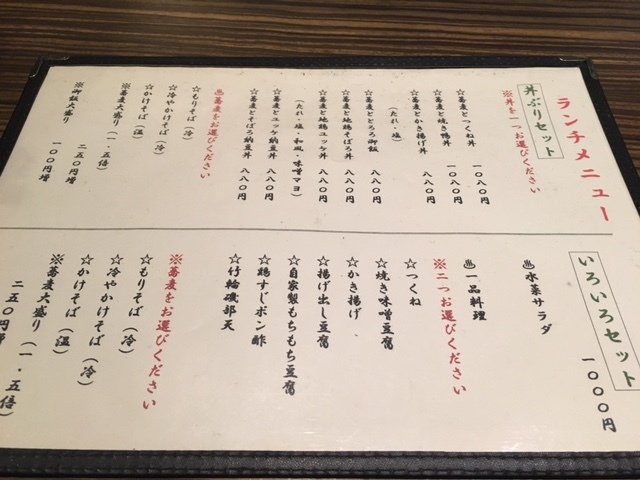 ランチメニュー
丼ぶりセット
※丼を一つお選びください
☆蕎麦とつくね丼 一〇八〇円
☆蕎麦と焼き鴨丼 一〇八〇円
☆蕎麦とかき揚げ丼 八八〇円
(たれ・塩)
☆蕎麦ととろろ御飯 八八〇円
☆蕎麦と地鶏そぼろ丼 八八〇円
☆蕎麦と地鶏ユッケ丼 八八〇円
(たれ・塩・和風・味噌マヨ)
☆蕎麦とユッケ納豆丼 八八〇円
☆蕎麦とそぼろ納豆丼 八八〇円
♨蕎麦をお選びください
☆もりそば(冷)
☆冷やかけそば(冷)
☆かけそば(温)
※蕎麦大盛り(一・五倍)
二五〇円増
※御飯大盛り 一〇〇円増
いろいろセット
一〇〇〇円
♨水菜サラダ
♨一品料理
※二つお選びください
☆つくね
☆焼き味噌豆腐
☆かき揚げ
☆揚げ出し豆腐
☆自家製もちもち豆腐
☆鶏すじポン酢
☆竹輪磯部天
※蕎麦をお選びください
☆もりそば(冷)
☆冷やかけそば(冷)
☆かけそば(温)
※蕎麦大盛り(一・五倍)
二五〇円増